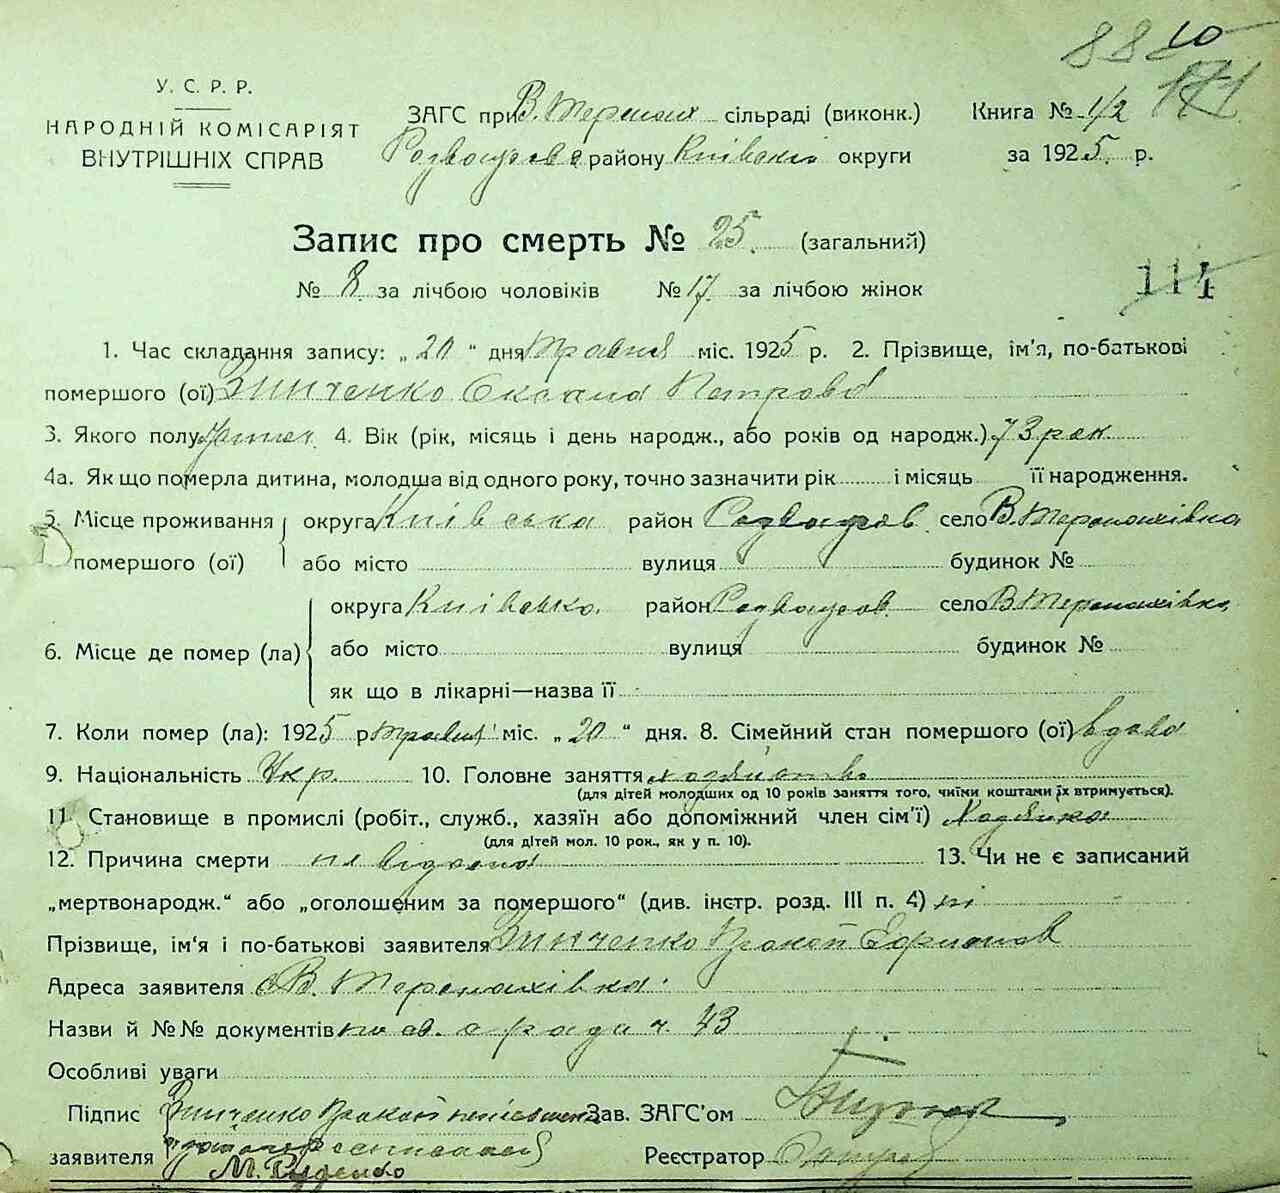 88 10
171
У. С. Р. Р.
НАРОДНІЙ КОМІСАРІЯТ
ВНУТРІШНІХ СПРАВ
ЗАГС при В. сільраді (виконк.)
району Київської округи
Книга № 1/2
за 1925 р.
Запис про смерть № 25 (загальний)
№ 8 за лічбою чоловіків № 17 за лічбою жінок
114
1. Час складання запису: „ 20 “ дня Травня міс. 1925 р. 2. Прізвище, ім'я, по-батькові
помершого (ої) Зинченко Оксана Петрова
3. Якого полу 4. Вік (рік, місяць і день народж., або років од народж.) 73 рок
4а. Як що померла дитина, молодша від одного року, точно зазначити рік і місяць її народження.
5. Місце проживання округа Київська район село В.
помершого (ої) або місто вулиця будинок №
округа Київська район село В.
6. Місце де помер (ла) або місто вулиця будинок №
як що в лікарні—назва її
7. Коли помер (ла): 1925 р травня міс. „ 20 “ дня. 8. Сімейний стан помершого (ої) вдова
9. Національність Укр. 10. Головне заняття
(для дітей молодших од 10 років заняття того, чиїми коштами їх втримується).
11. Становище в промислі (робіт., служб., хазяїн або допоміжний член сім'ї)
(для дітей мол. 10 рок., як у п. 10).
12. Причина смерти не відома 13. Чи не є записаний
„мертвонародж.“ або „оголошеним за помершого“ (див. інстр. розд. III п. 4) ні
Прізвище, ім'я і по-батькові заявителя Зинченко
Адреса заявителя с. В.
Назви й №№ документів ч. 43
Особливі уваги
Підпис Зинченко Зав. ЗАГС'ом
заявителя Реєстратор
М. Руденко